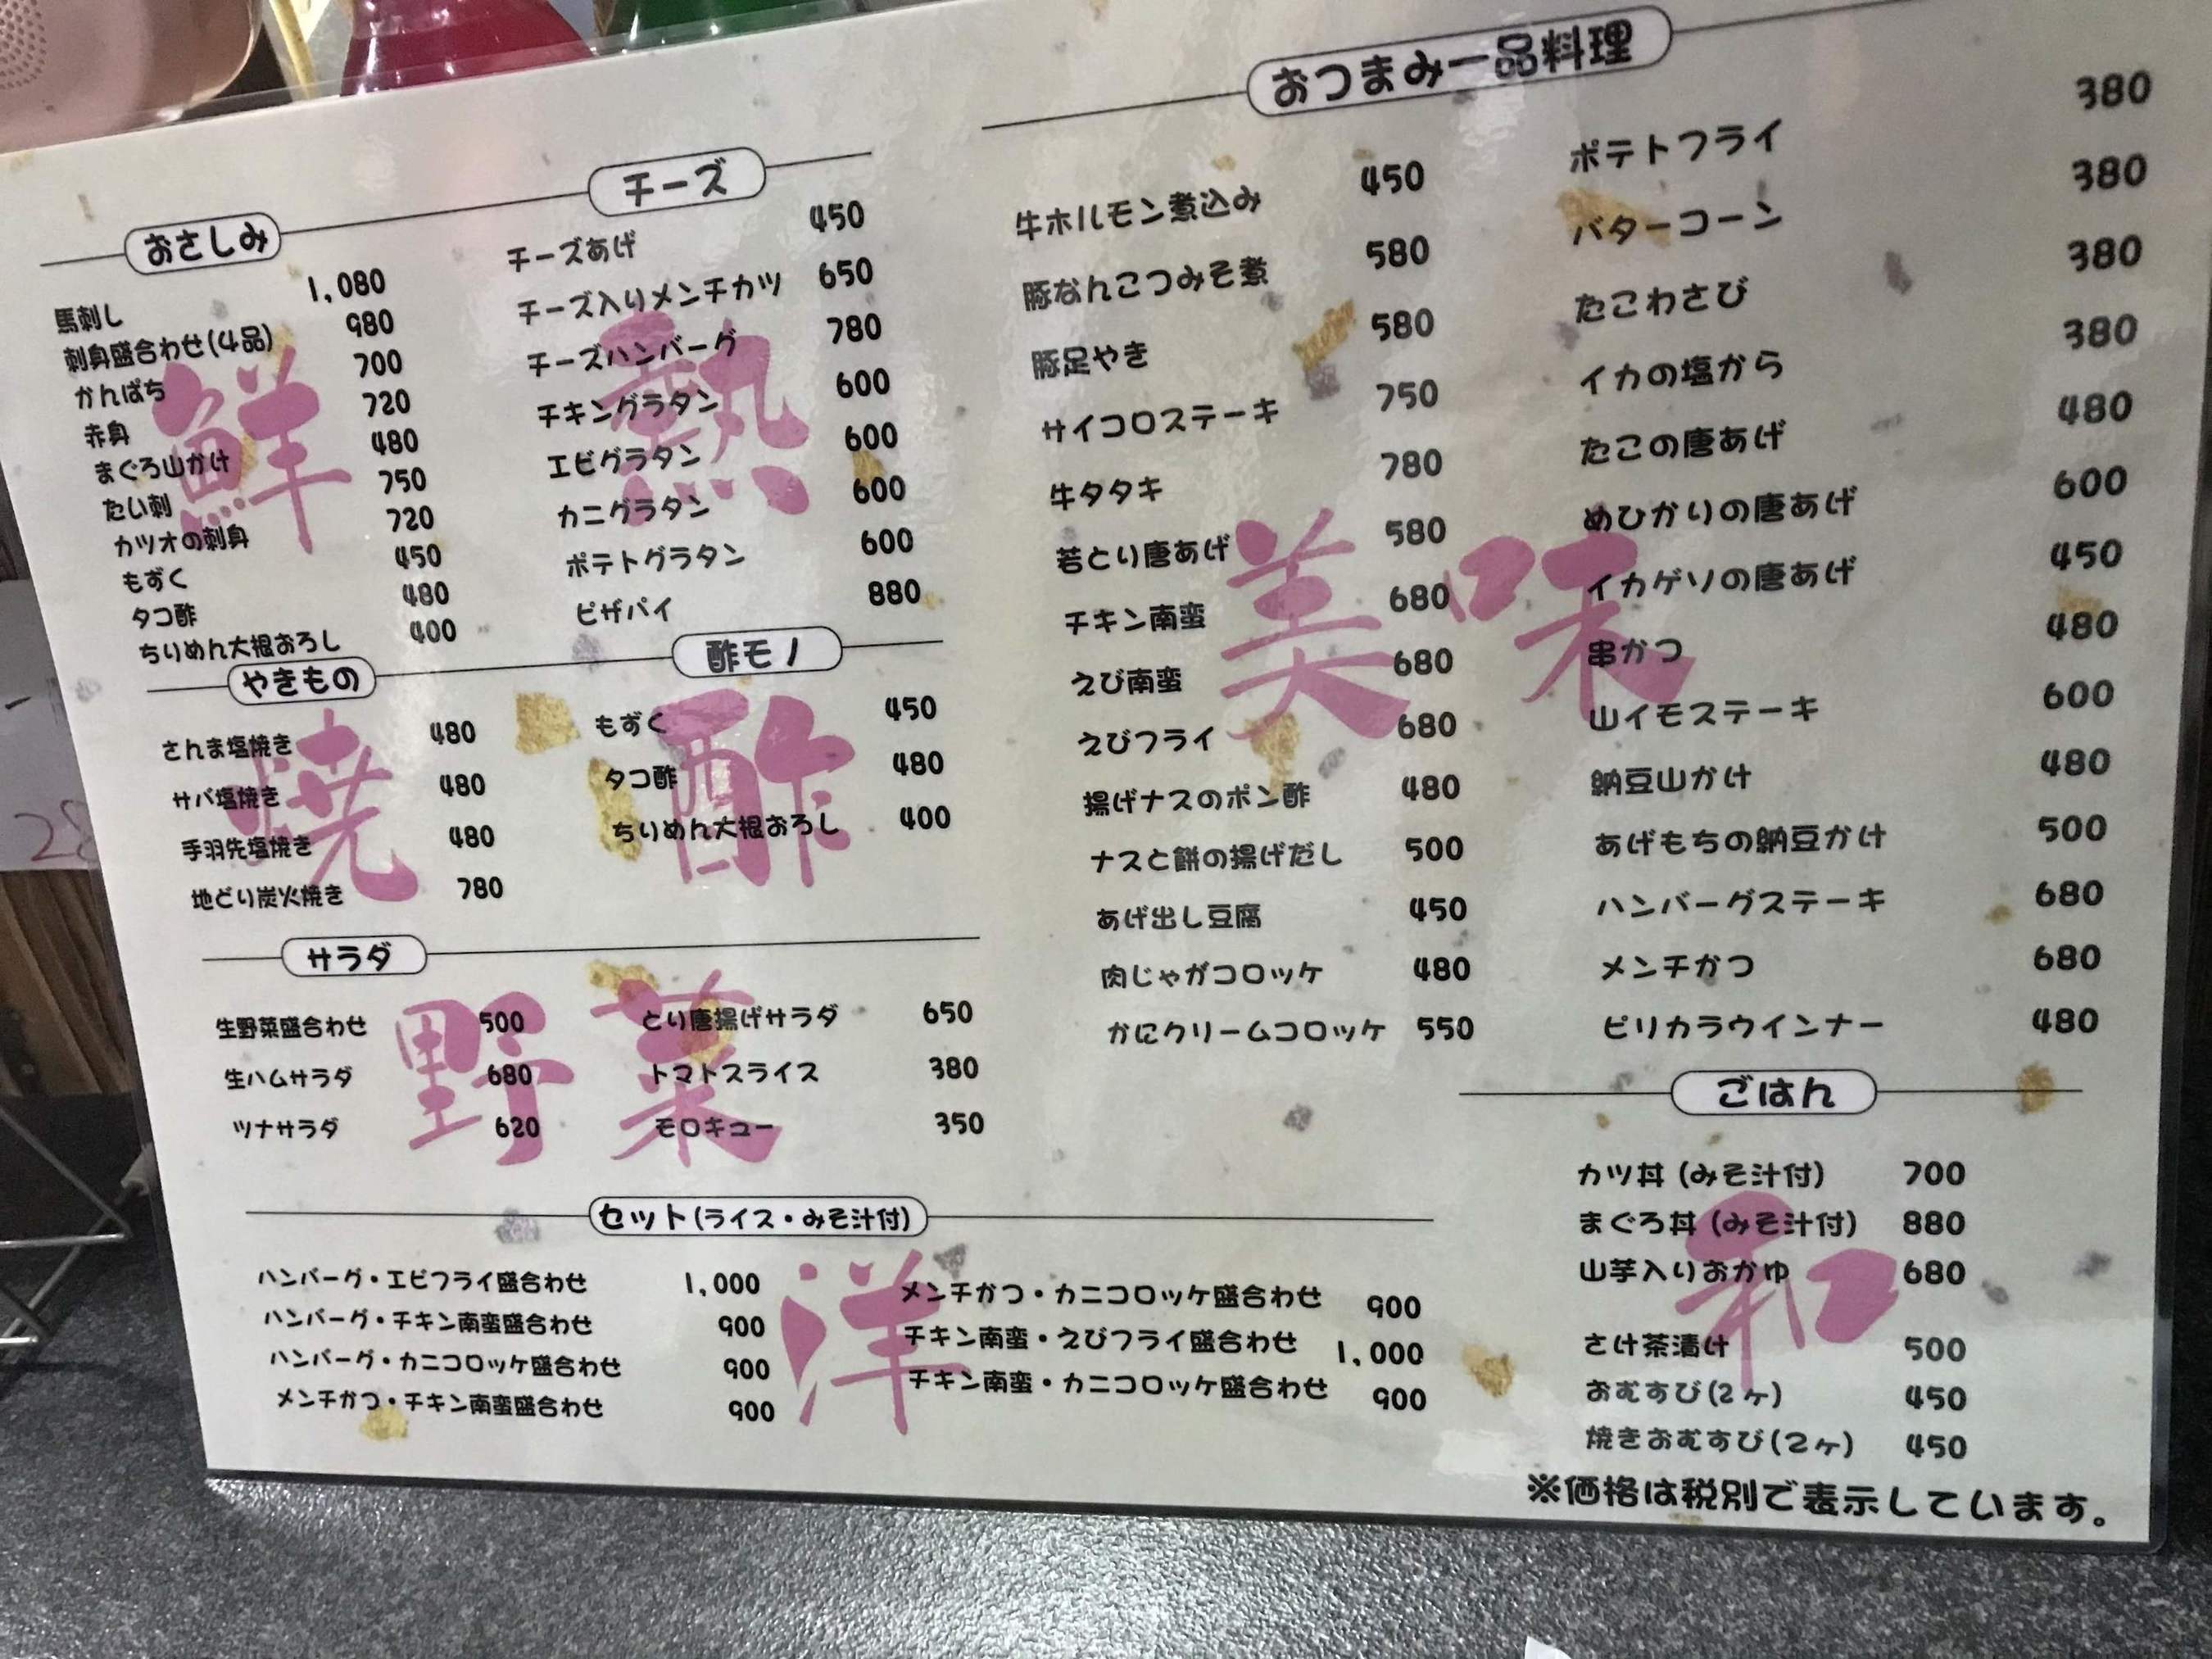 おさしみ
鮮
馬刺し 1,080
刺身盛合わせ(4品) 980
かんぱち 700
赤身 720
まぐろ山かけ 480
たい刺 750
カツオの刺身 720
もずく 450
タコ酢 480
ちりめん大根おろし 400
チーズ
熱
チーズあげ 450
チーズ入りメンチカツ 650
チーズハンバーグ 780
チキングラタン 600
エビグラタン 600
カニグラタン 600
ポテトグラタン 600
ピザパイ 880
やきもの
焼
さんま塩焼き 480
サバ塩焼き 480
手羽先塩焼き 480
地どり炭火焼き 780
酢モノ
酢
もずく 450
タコ酢 480
ちりめん大根おろし 400
サラダ
野菜
生野菜盛合わせ 500
生ハムサラダ 680
ツナサラダ 620
とり唐揚げサラダ 650
トマトスライス 380
モロキュー 350
セット(ライス・みそ汁付)
洋
ハンバーグ・エビフライ盛合わせ 1,000
ハンバーグ・チキン南蛮盛合わせ 900
ハンバーグ・カニコロッケ盛合わせ 900
メンチかつ・チキン南蛮盛合わせ 900
メンチかつ・カニコロッケ盛合わせ 900
チキン南蛮・えびフライ盛合わせ 1,000
チキン南蛮・カニコロッケ盛合わせ 900
おつまみ一品料理
美味
牛ホルモン煮込み 450
豚なんこつみそ煮 580
豚足やき 580
サイコロステーキ 750
牛タタキ 780
若とり唐あげ 580
チキン南蛮 680
えび南蛮 680
えびフライ 680
揚げナスのポン酢 480
ナスと餅の揚げだし 500
あげ出し豆腐 450
肉じゃがコロッケ 480
かにクリームコロッケ 550
ポテトフライ 380
バターコーン 380
たこわさび 380
イカの塩から 380
たこの唐あげ 480
めひかりの唐あげ 600
イカゲソの唐あげ 450
串かつ 480
山イモステーキ 600
納豆山かけ 480
あげもちの納豆かけ 500
ハンバーグステーキ 680
メンチかつ 680
ピリカラウインナー 480
ごはん
和
カツ丼(みそ汁付) 700
まぐろ丼(みそ汁付) 880
山芋入りおかゆ 680
さけ茶漬け 500
おむすび(2ヶ) 450
焼きおむすび(2ヶ) 450
※価格は税別で表示しています。